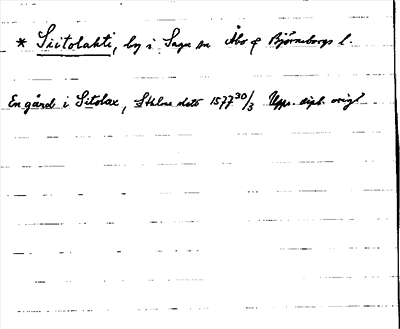 * Siitolahti, by i Sagu sn Åbo o Björneborgs l.
En gård i Sitolax, Sthlm dato 1577 30/3 Upps. dipl. orig!